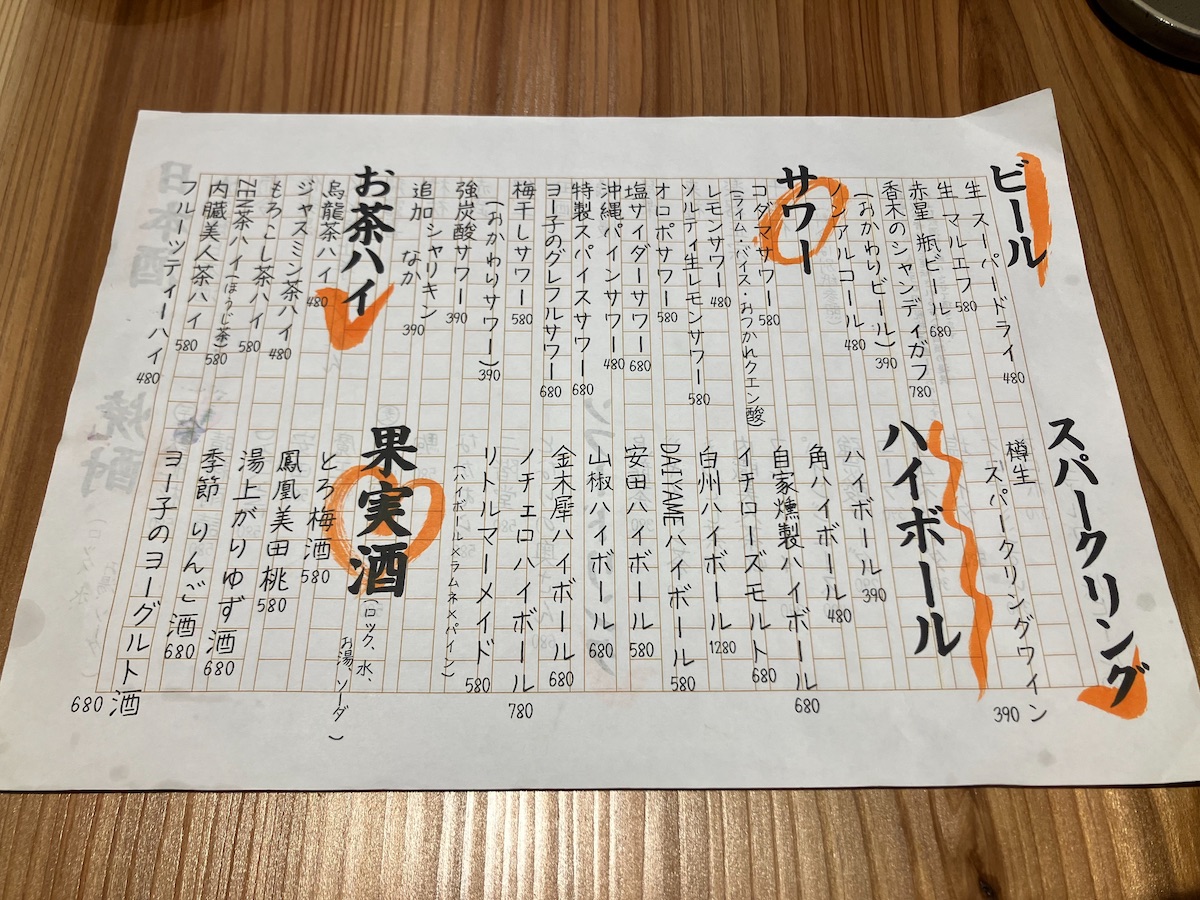 ビール
生 スーパードライ 480
生 マルエフ 580
赤星 瓶ビール 680
香木のシャンディガフ 780
(おかわりビール) 390
ノンアルコール 480
サワー
コダマサワー 580
(ライム・バイス・おつかれクエン酸)
レモンサワー 480
ソルティ生レモンサワー 580
オロポサワー 580
塩サイダーサワー 680
沖縄パインサワー 480
特製スパイスサワー 680
ヨー子のグレフルサワー 680
梅干しサワー 580
(おかわりサワー) 390
強炭酸サワー 390
追加 シャリキン
なか 390
お茶ハイ
烏龍茶ハイ 480
ジャスミン茶ハイ 480
もろこし茶ハイ 580
ZEN茶ハイ(ほうじ茶) 580
内臓美人茶ハイ 580
フルーツティーハイ 480
スパークリング
樽生
スパークリングワイン 390
ハイボール
ハイボール 390
角ハイボール 480
自家燻製ハイボール 680
イチローズモルト 680
白州ハイボール 1280
DAIYAMEハイボール 580
安田ハイボール 580
山椒ハイボール 680
金木犀ハイボール 680
ノチェロハイボール 780
リトルマーメイド 580
(ハイボール×ラムネ×パイン)
果実酒
(ロック、水、
お湯、ソーダ)
とろ梅酒 580
鳳凰美田桃 580
湯上がりゆず酒 680
季節 りんご酒 680
ヨー子のヨーグルト酒 680